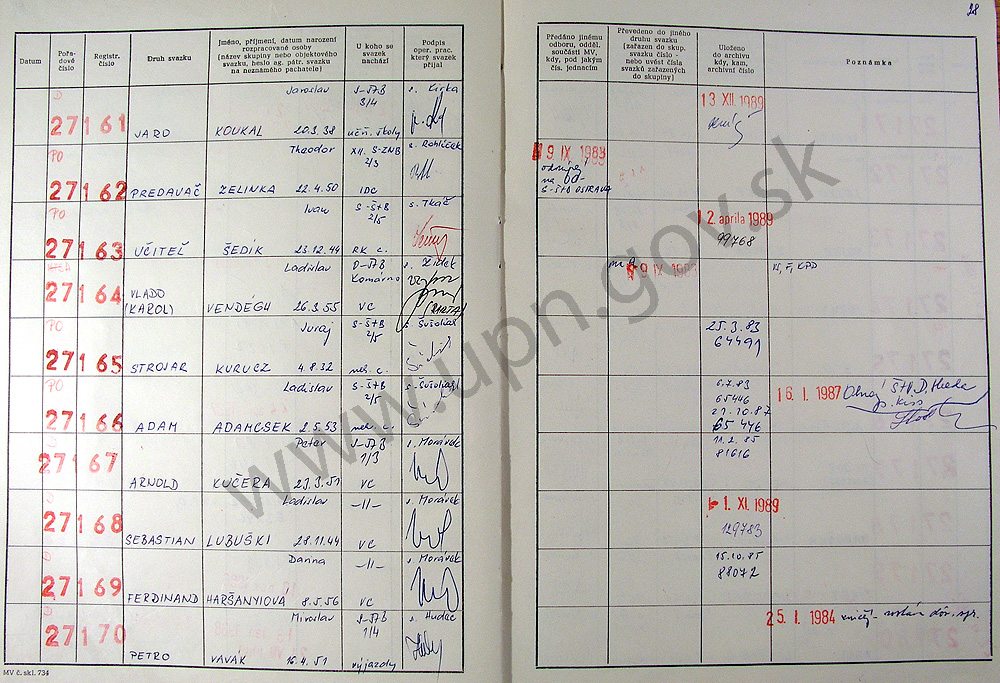 28
Datum
Pořa-
dové
číslo
Registr.
číslo
Druh svazku
Jméno, příjmení, datum narození
rozpracované osoby
(název skupiny nebo objektového
svazku, heslo ag. pátr. svazku
na neznámého pachatele)
U koho se
svazek
nachází
Podpis
oper. prac.
který svazek
přijal
Předáno jinému
odboru, odděl.
součásti MV,
kdy, pod jakým
čís. jednacím
Převedeno do jiného
druhu svazku
(zařazen do skup.
svazku číslo -
nebo uvést čísla
svazků zařazených
do skupiny)
Uloženo
do archívu
kdy, kam,
archivní číslo
Poznámka
D
27161
JARO
Jaroslav
KOUKAL 20.3.38
S-ŠTB
3/4
učň. školy
13 XII. 1989
PO
27162
PREDAVAČ
Theodor
ZELINKA 22.4.50
XII. S-ZNB
2/3
IDC
s. Rohlíček
9 IX 1983
na
6-ŠtB OSTRAVA
PO
27163
UČITEĽ
Ivan
ŠEDÍK 23.12.44
S-ŠtB
2/5
RK c.
s. Tkáč
2. apríla 1989
99768
27164
VLADO
(KAROL)
Ladislav
VENDÉGH 26.3.55
O-ŠTB
Komárno
VC
s. Židek
PO
27165
STROJÁR
Juraj
KURUCZ 4.8.32
S-ŠtB
2/5
nek. c.
s. Šušoliak
25.3.83
64491
PO
27166
ADAM
Ladislav
ADAMCSEK 2.5.53
S-ŠtB
2/5
nek. c.
s. Šušoliak
6.7.83
65446
21.10.87
65446
16. I. 1987
27167
ARNOLD
Peter
KUČERA 23.3.51
S-ŠTB
1/3
VC
s. Morávek
11.2.85
81616
D
27168
SEBASTIAN
Ladislav
LUBUŠKI 28.11.44
-11-
VC
s. Morávek
1. XI. 1989
129783
D
27169
FERDINAND
Darina
HARŠANYIOVÁ 8.5.56
-11-
VC
s. Morávek
15.10.85
88072
D
27170
PETRO
Miroslav
VAVÁK 16.4.51
S-ŠTB
1/4
výjazdy
s. Hudec
25. I. 1984
MV č. skl. 734
www.upn.gov.sk